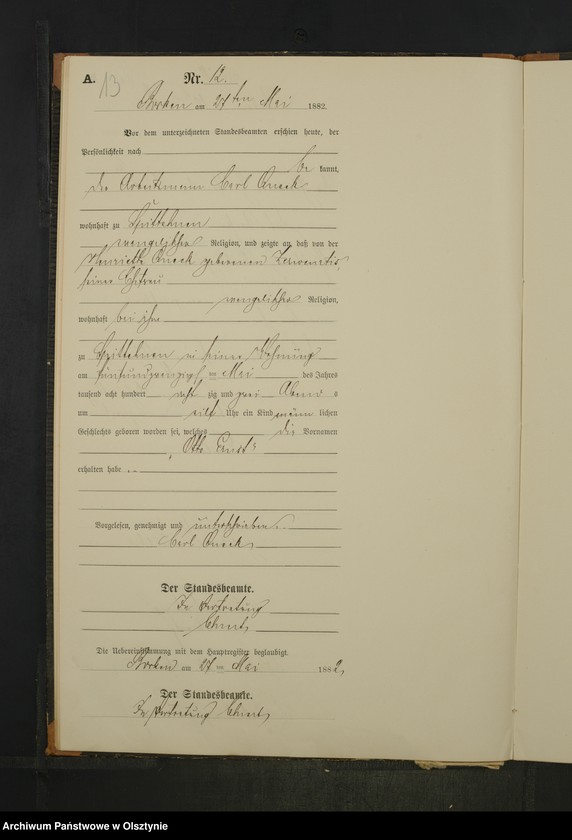 A. 13 Nr. 12.
Borken am 27ten Mai 1882.
Vor dem unterzeichneten Standesbeamten erschien heute, der
Persönlichkeit nach
be kannt,
der Arbeitsmann Carl Queck
wohnhaft zu
evangelischer Religion, und zeigte an, daß von der
Henriette Queck geborenen
seiner Ehefrau
evangelischer Religion,
wohnhaft bei ihm
zu in seiner Wohnung
am fünfundzwanzigsten Mai des Jahres
tausend acht hundert acht zig und zwei Abends
um eilf Uhr ein Kind männ lichen
Geschlechts geboren worden sei, welches die Vornamen
„Otto Ernst“
erhalten habe
Vorgelesen, genehmigt und unterschrieben.
Carl Queck
Der Standesbeamte.
In Vertretung
Die Uebereinstimmung mit dem Hauptregister beglaubigt.
Borken am 27ten Mai 1882,
Der Standesbeamte.
In Vertretung
Archiwum Państwowe w Olsztynie